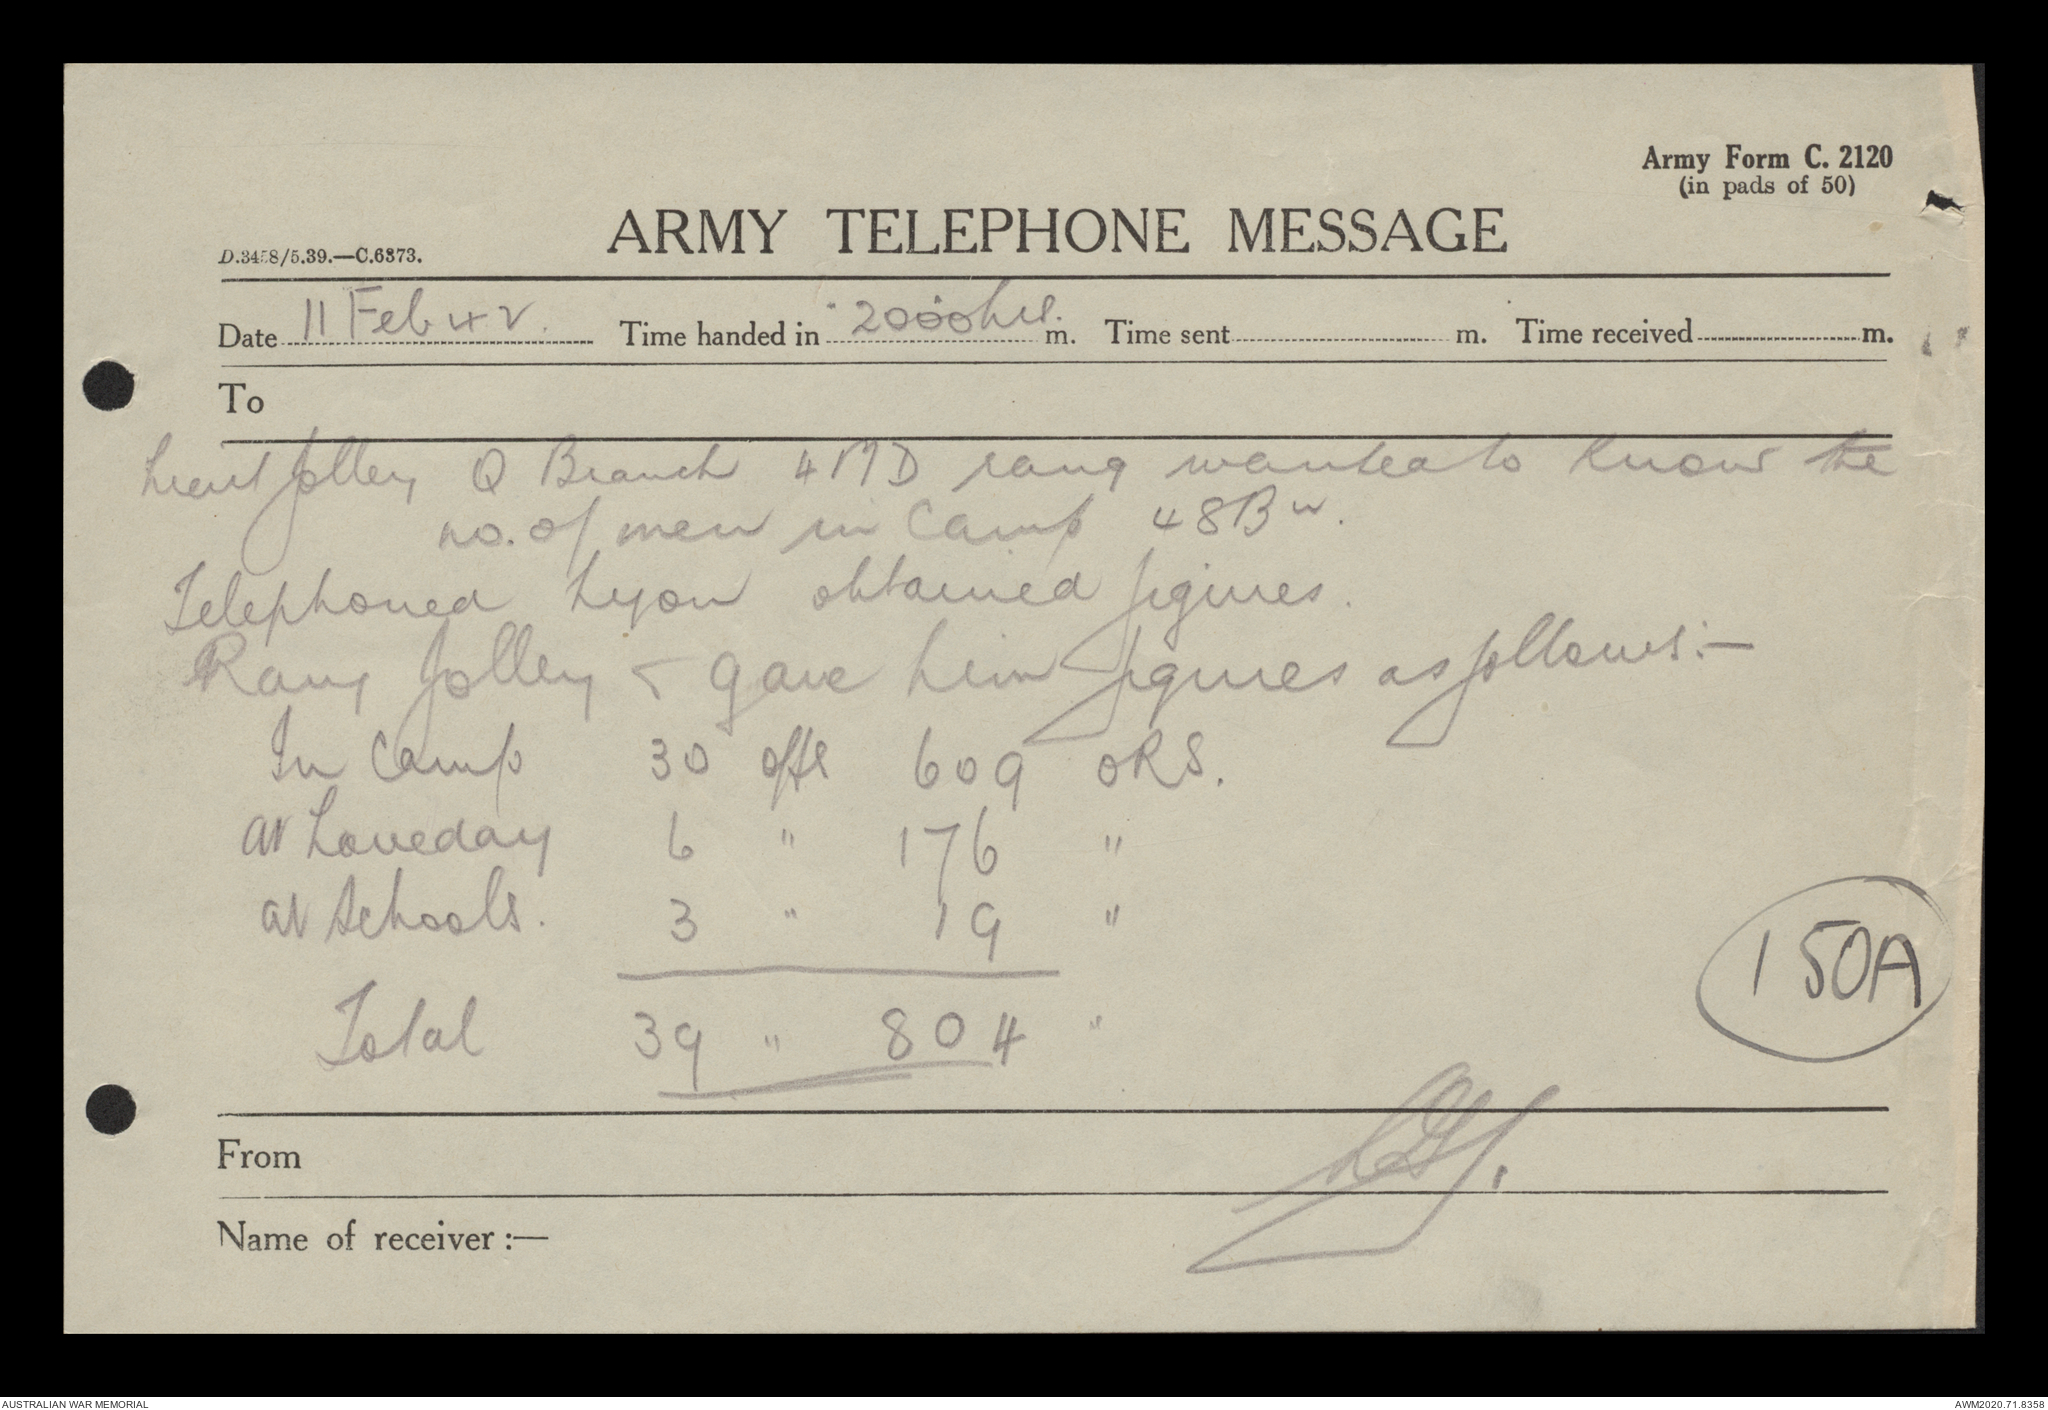 Army Form C. 2120
(in pads of 50)
ARMY TELEPHONE MESSAGE
D.3458/5.39.—C.6373.
Date 11 Feb 42. Time handed in 2000 hrs. m. Time sent m. Time received m.
To
Lieut Jolley Q Branch 4MD rang wanted to know the
no. of men in Camp 48Bn.
Telephoned Lyon obtained figures.
Rang Jolley & gave him figures as follows:—
In Camp 30 offs 609 ORS.
at Loveday 6 " 176 "
at Schools. 3 " 19 "
Total 39 " 804 "
150A
From
Name of receiver :—
AUSTRALIAN WAR MEMORIAL
AWM2020.71.8358